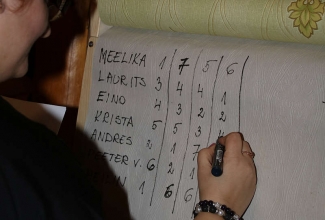 MEELIKA 1 7 5 6
LAURITS 3 4 4 1
EINO 4 3 2 2
KRISTA 5 5 3
ANDRES 2 1 7
PETER V. 6 2 1
1 6 6